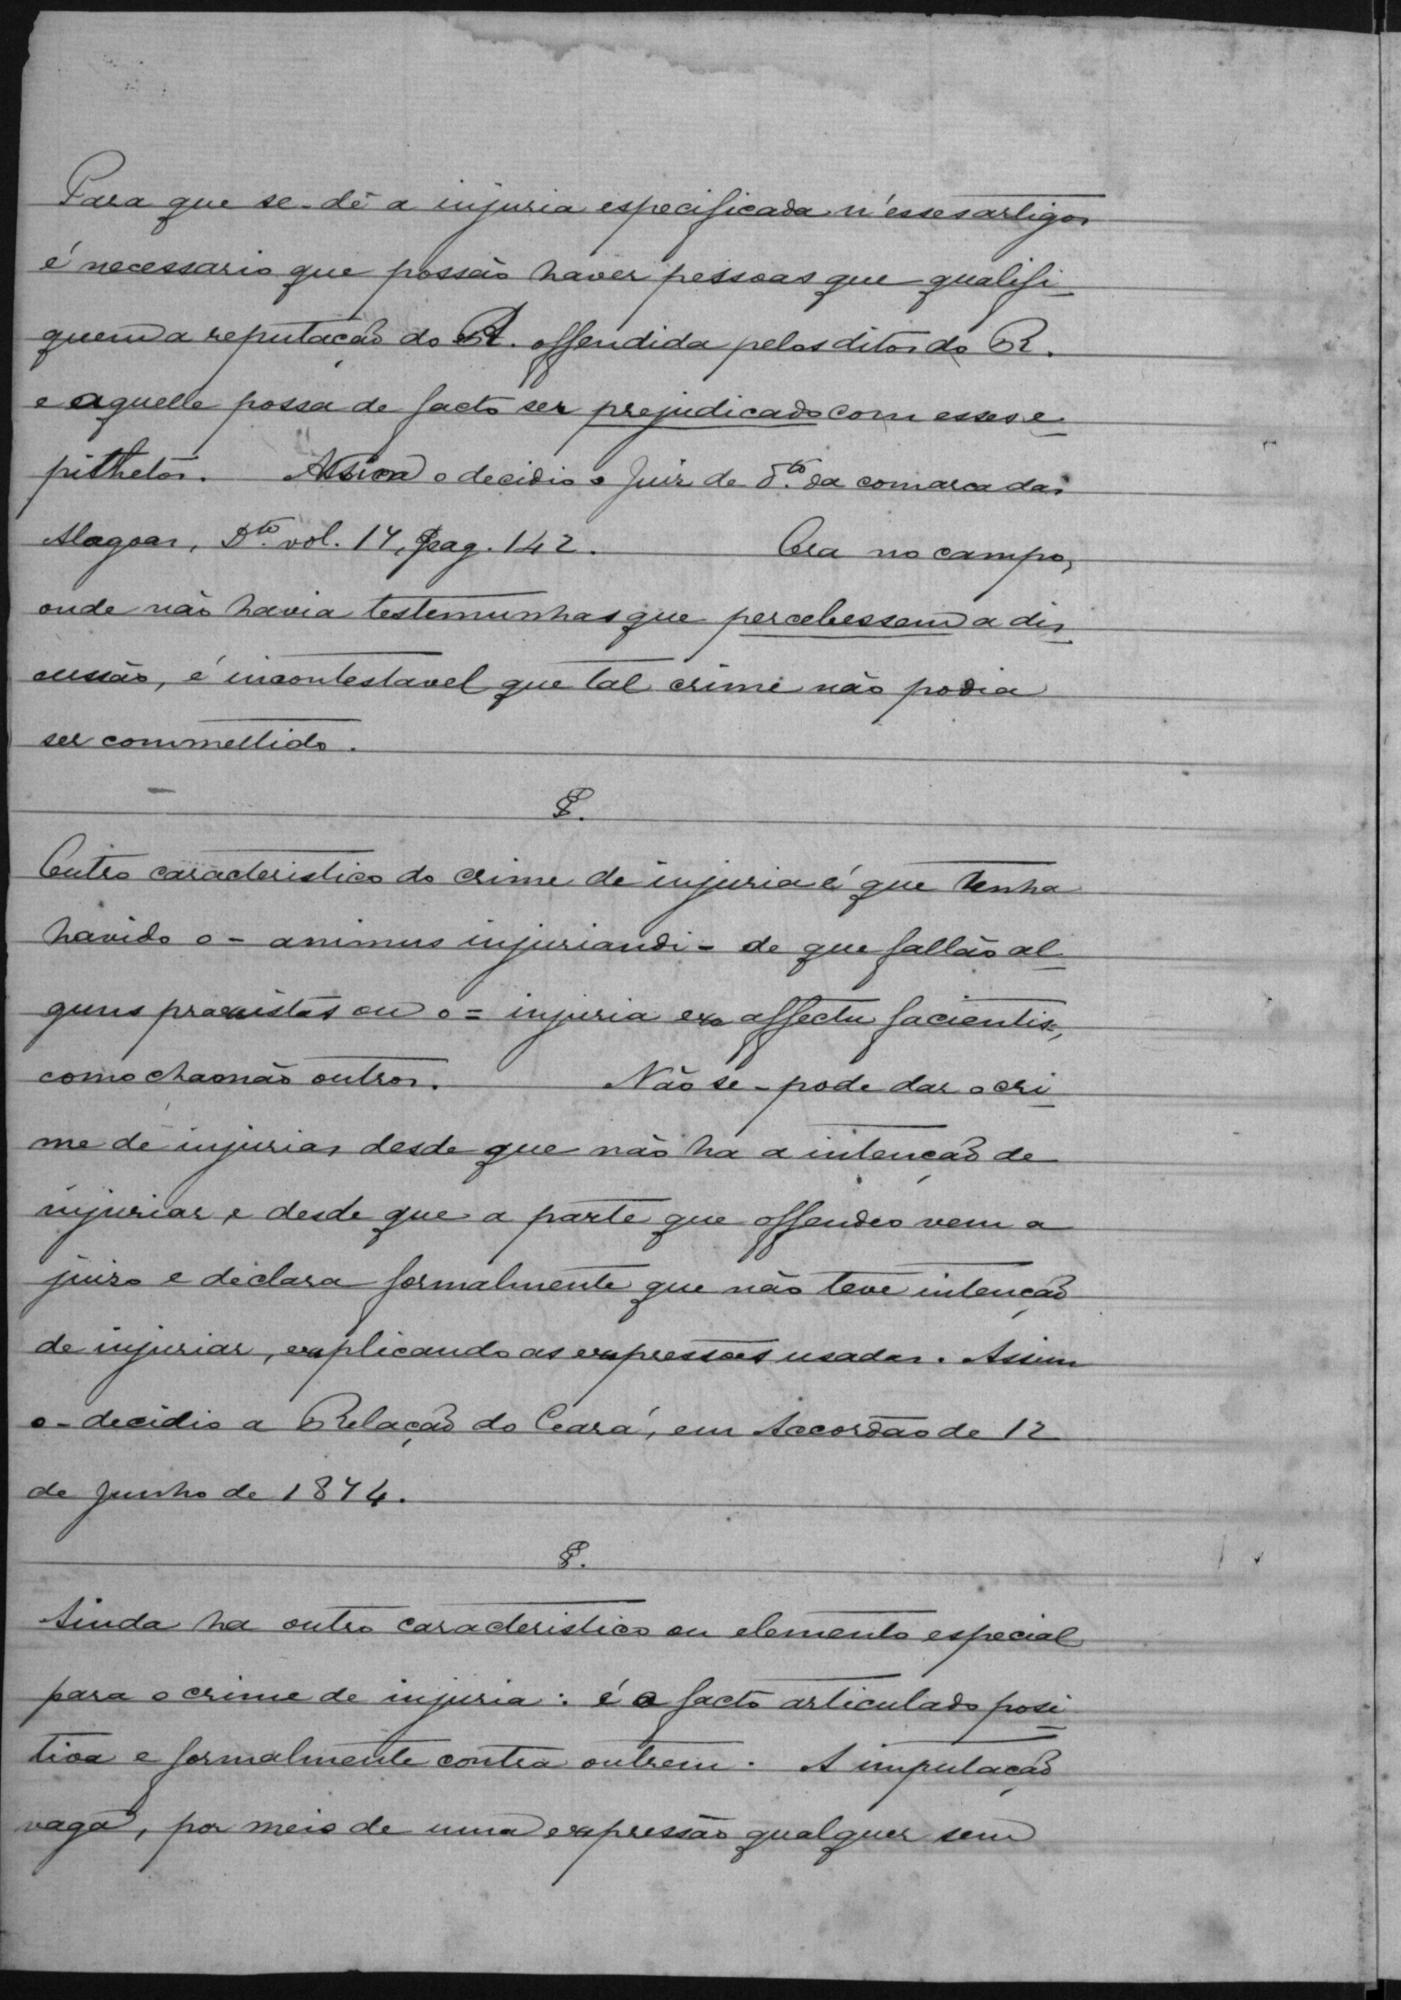 Para que se-dê a injuria especificada n'esses artigos
é necessario que possão haver pessoas que qualifi-
quem a reputação do A. offendida pelos ditos do R.
e aquelle possa de facto ser prejudicado com esses e-
pithetos. Assim o decidio o Juiz de D.to da comarca das
Alagoas, D.to vol. 17, pag. 142. Ora no campo,
onde não havia testemunhas que percebessem a dis-
cussão, é incontestavel que tal crime não podia
ser commettido.
§.
Outro caracteristico do crime de injuria é que tenha
havido o - animus injuriandi - de que fallão al-
guns praxistas ou o = injuria ex affectu facientis =,
como chamão outros. Não se-pode dar o cri-
me de injurias desde que não ha a intenção de
injuriar e desde que a parte que offendeo vem a
juizo e declara formalmente que não teve intenção
de injuriar, explicando as expressões usadas. Assim
o-decidio a Relação do Ceará, em Accordão de 12
de Junho de 1874.
§.
Ainda ha outro caracteristico ou elemento especial
para o crime de injuria: é o facto articulado posi-
tiva e formalmente contra outrem. A imputação
vaga, por meio de uma expressão qualquer sem